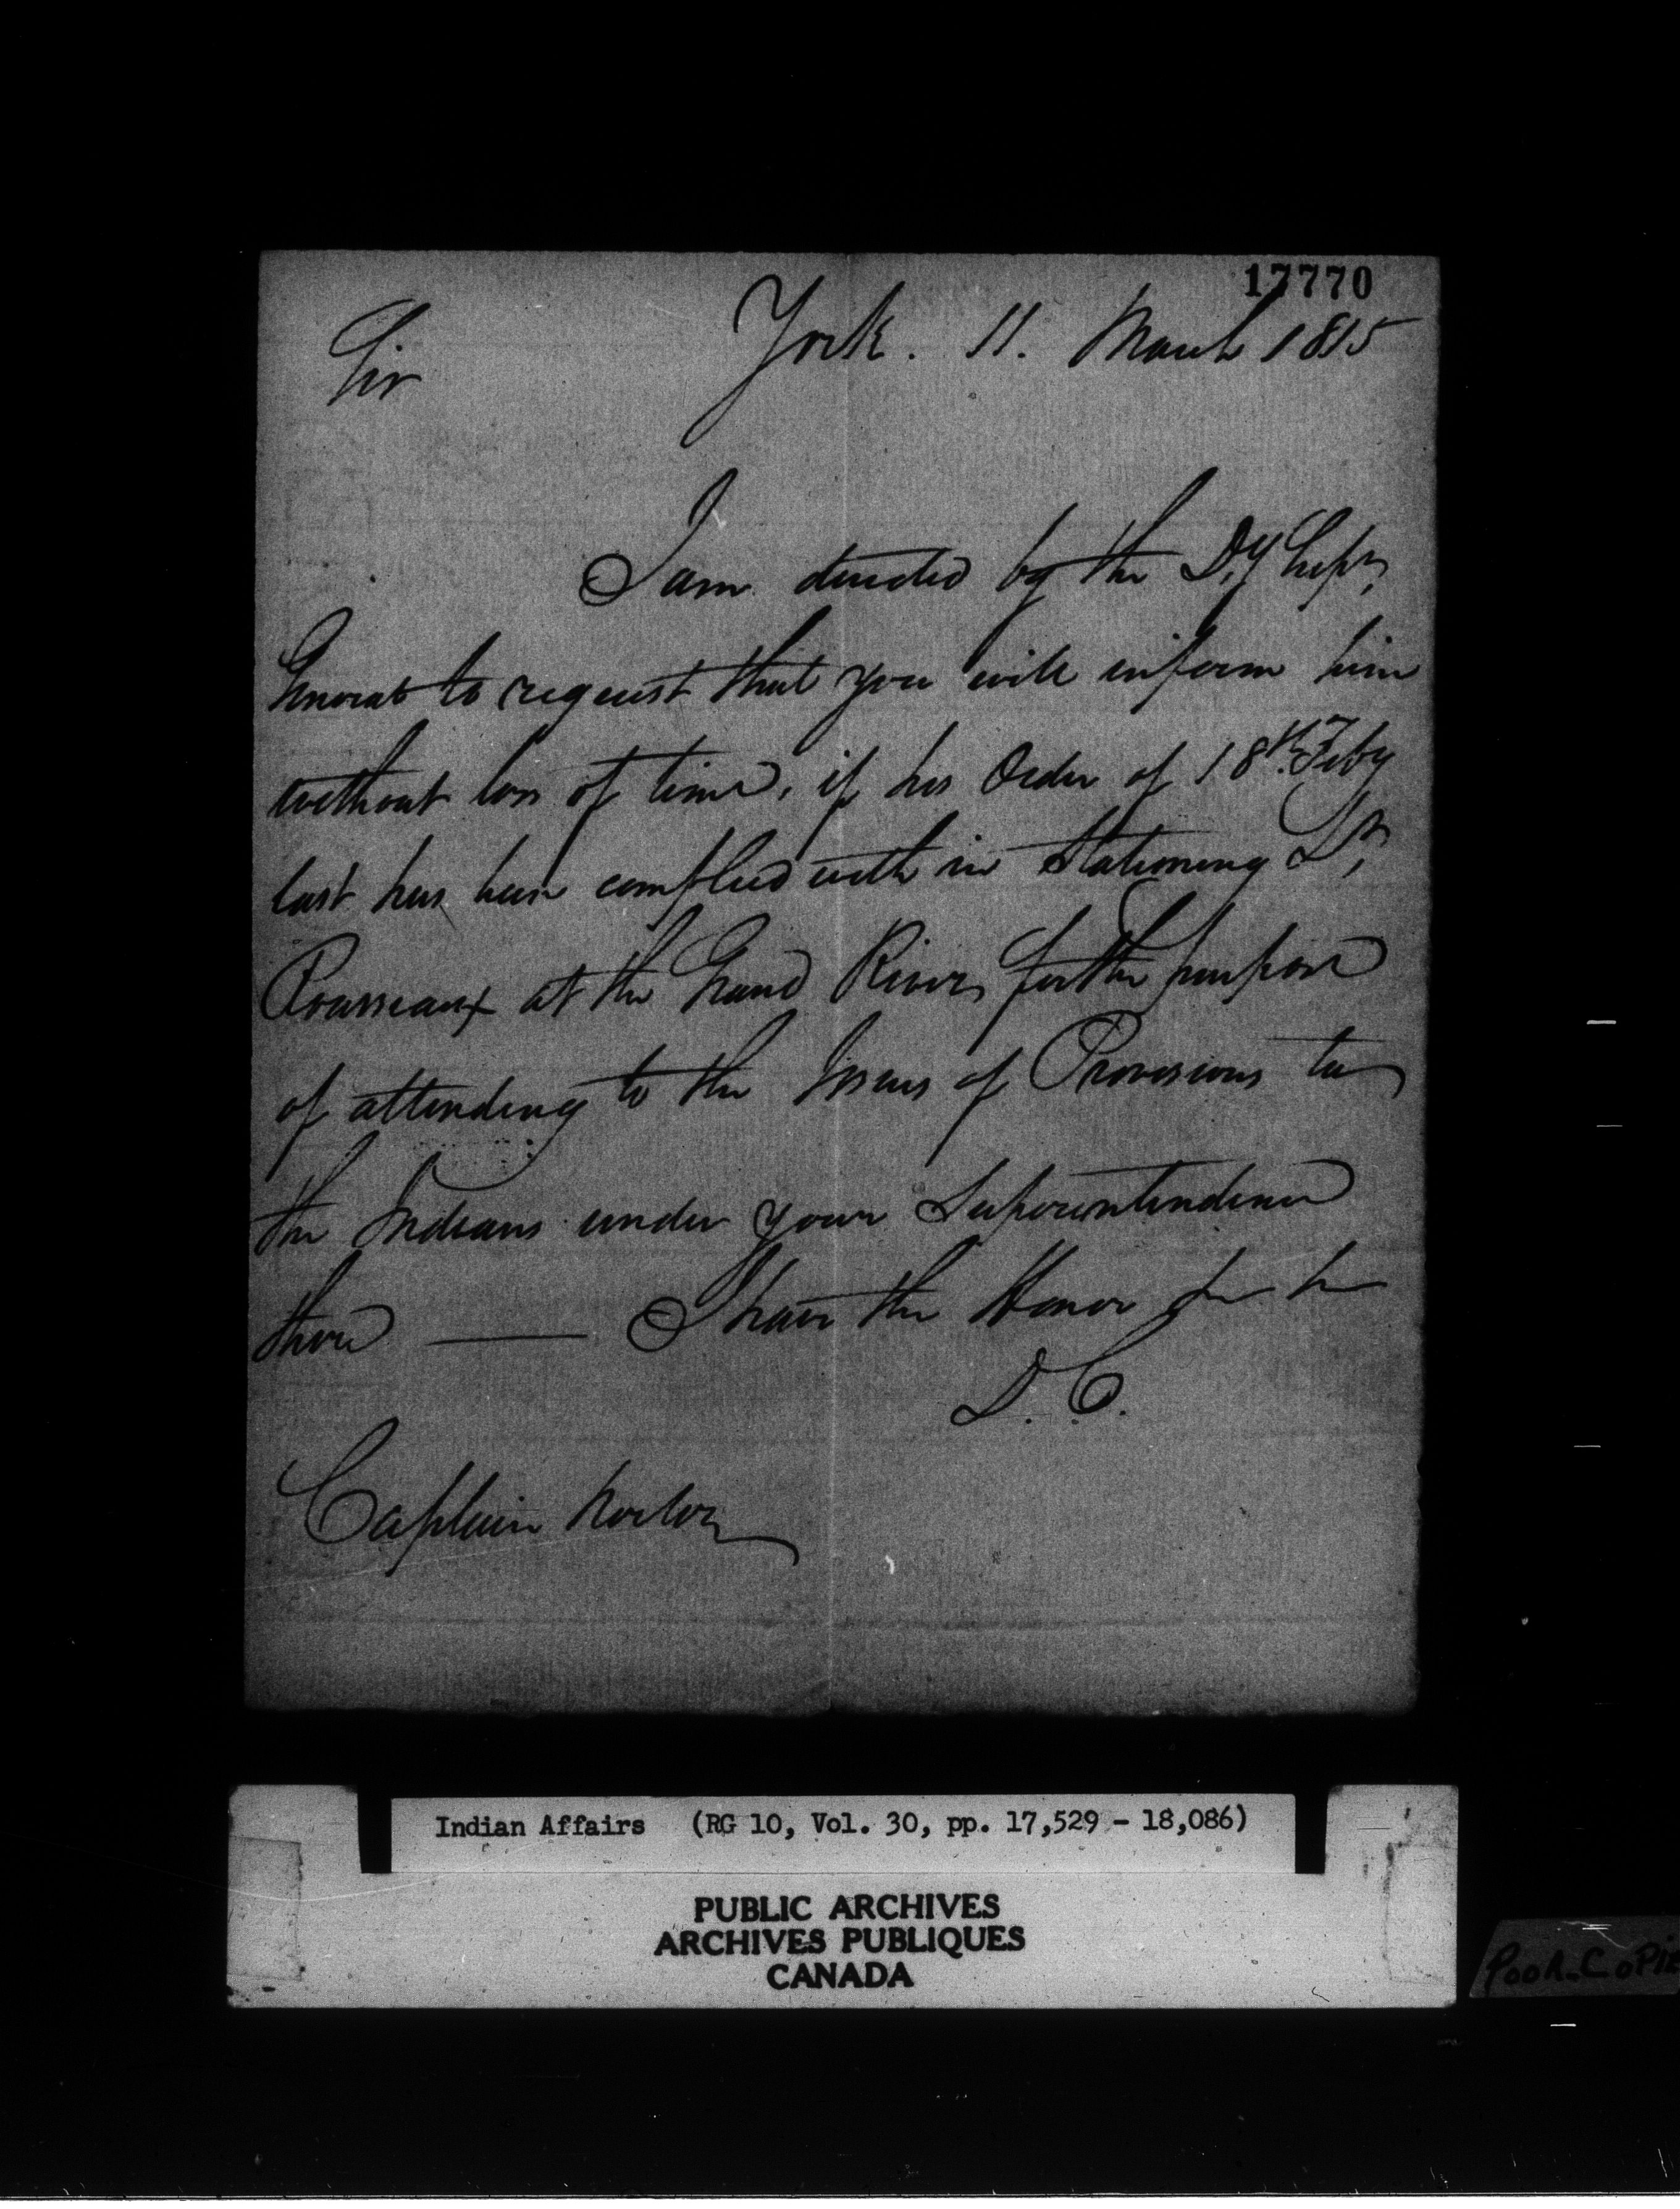 17770
York. 11. March 1815
Sir
I am directed by the Dy Supr
General to request that you will inform him
without loss of time, if his Order of 18th Feby
last has been complied with in Stationing Lt
Rousseaux at the Grand River, for the purpose
of attending to the Issues of Provisions to
the Indians under your Superintendence
there — I have the Honor
D. C.
Captain Norton
Indian Affairs (RG 10, Vol. 30, pp. 17,529 - 18,086)
PUBLIC ARCHIVES
ARCHIVES PUBLIQUES
CANADA